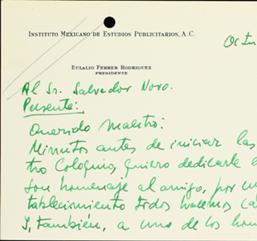 INSTITUTO MEXICANO DE ESTUDIOS PUBLICITARIOS, A. C.
Octu
EULALIO FERRER RODRIGUEZ
PRESIDENTE
Al Sr. Salvador Novo.
Presente:
Querido Maestro:
Minutos antes de iniciar las
tro Coloquio, quiero dedicarle e
son homenaje al amigo, por un
tablecimiento todos hacemos ca
y, también, a uno de los hom